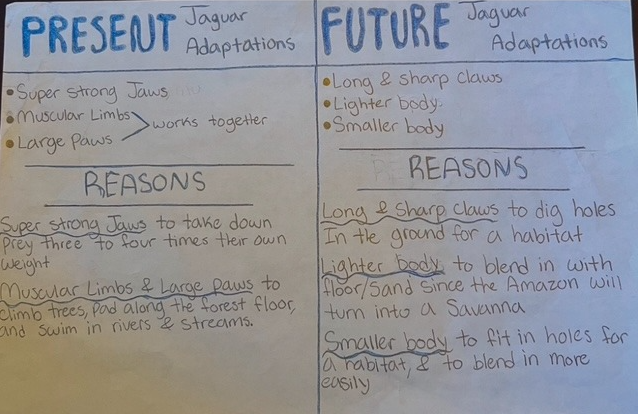 PRESENT Jaguar Adaptations
• Super strong Jaws
• Muscular Limbs
• Large Paws
works together
REASONS
Super strong Jaws to take down
Prey three to four times their own
weight
Muscular Limbs & Large Paws to
climb trees, pad along the forest floor,
and swim in rivers & streams.
FUTURE Jaguar Adaptations
• Long & sharp claws
• Lighter body
• Smaller body
REASONS
Long & Sharp Claws to dig holes
In the ground for a habitat
Lighter body to blend in with
floor/Sand since the Amazon will
turn into a Savanna
Smaller body to fit in holes for
a habitat, & to blend in more
easily